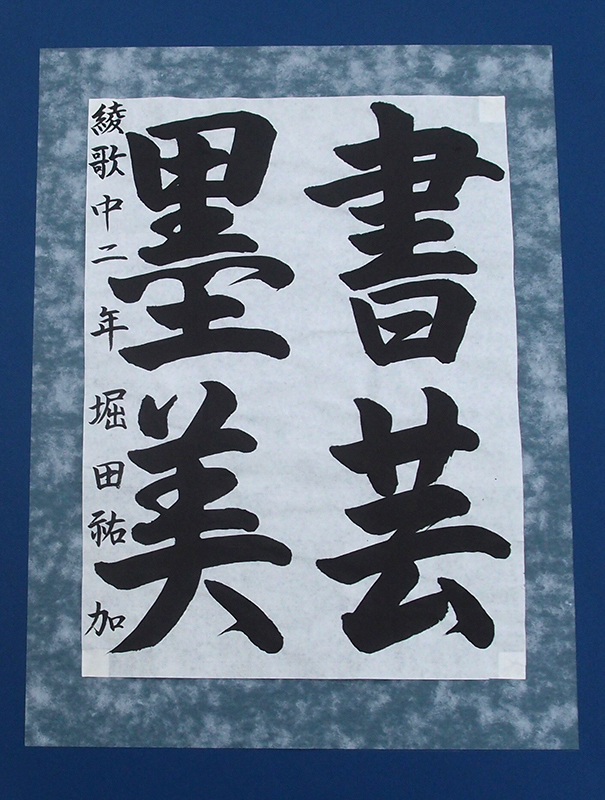 書芸
墨美
綾歌中二年 堀田祐加